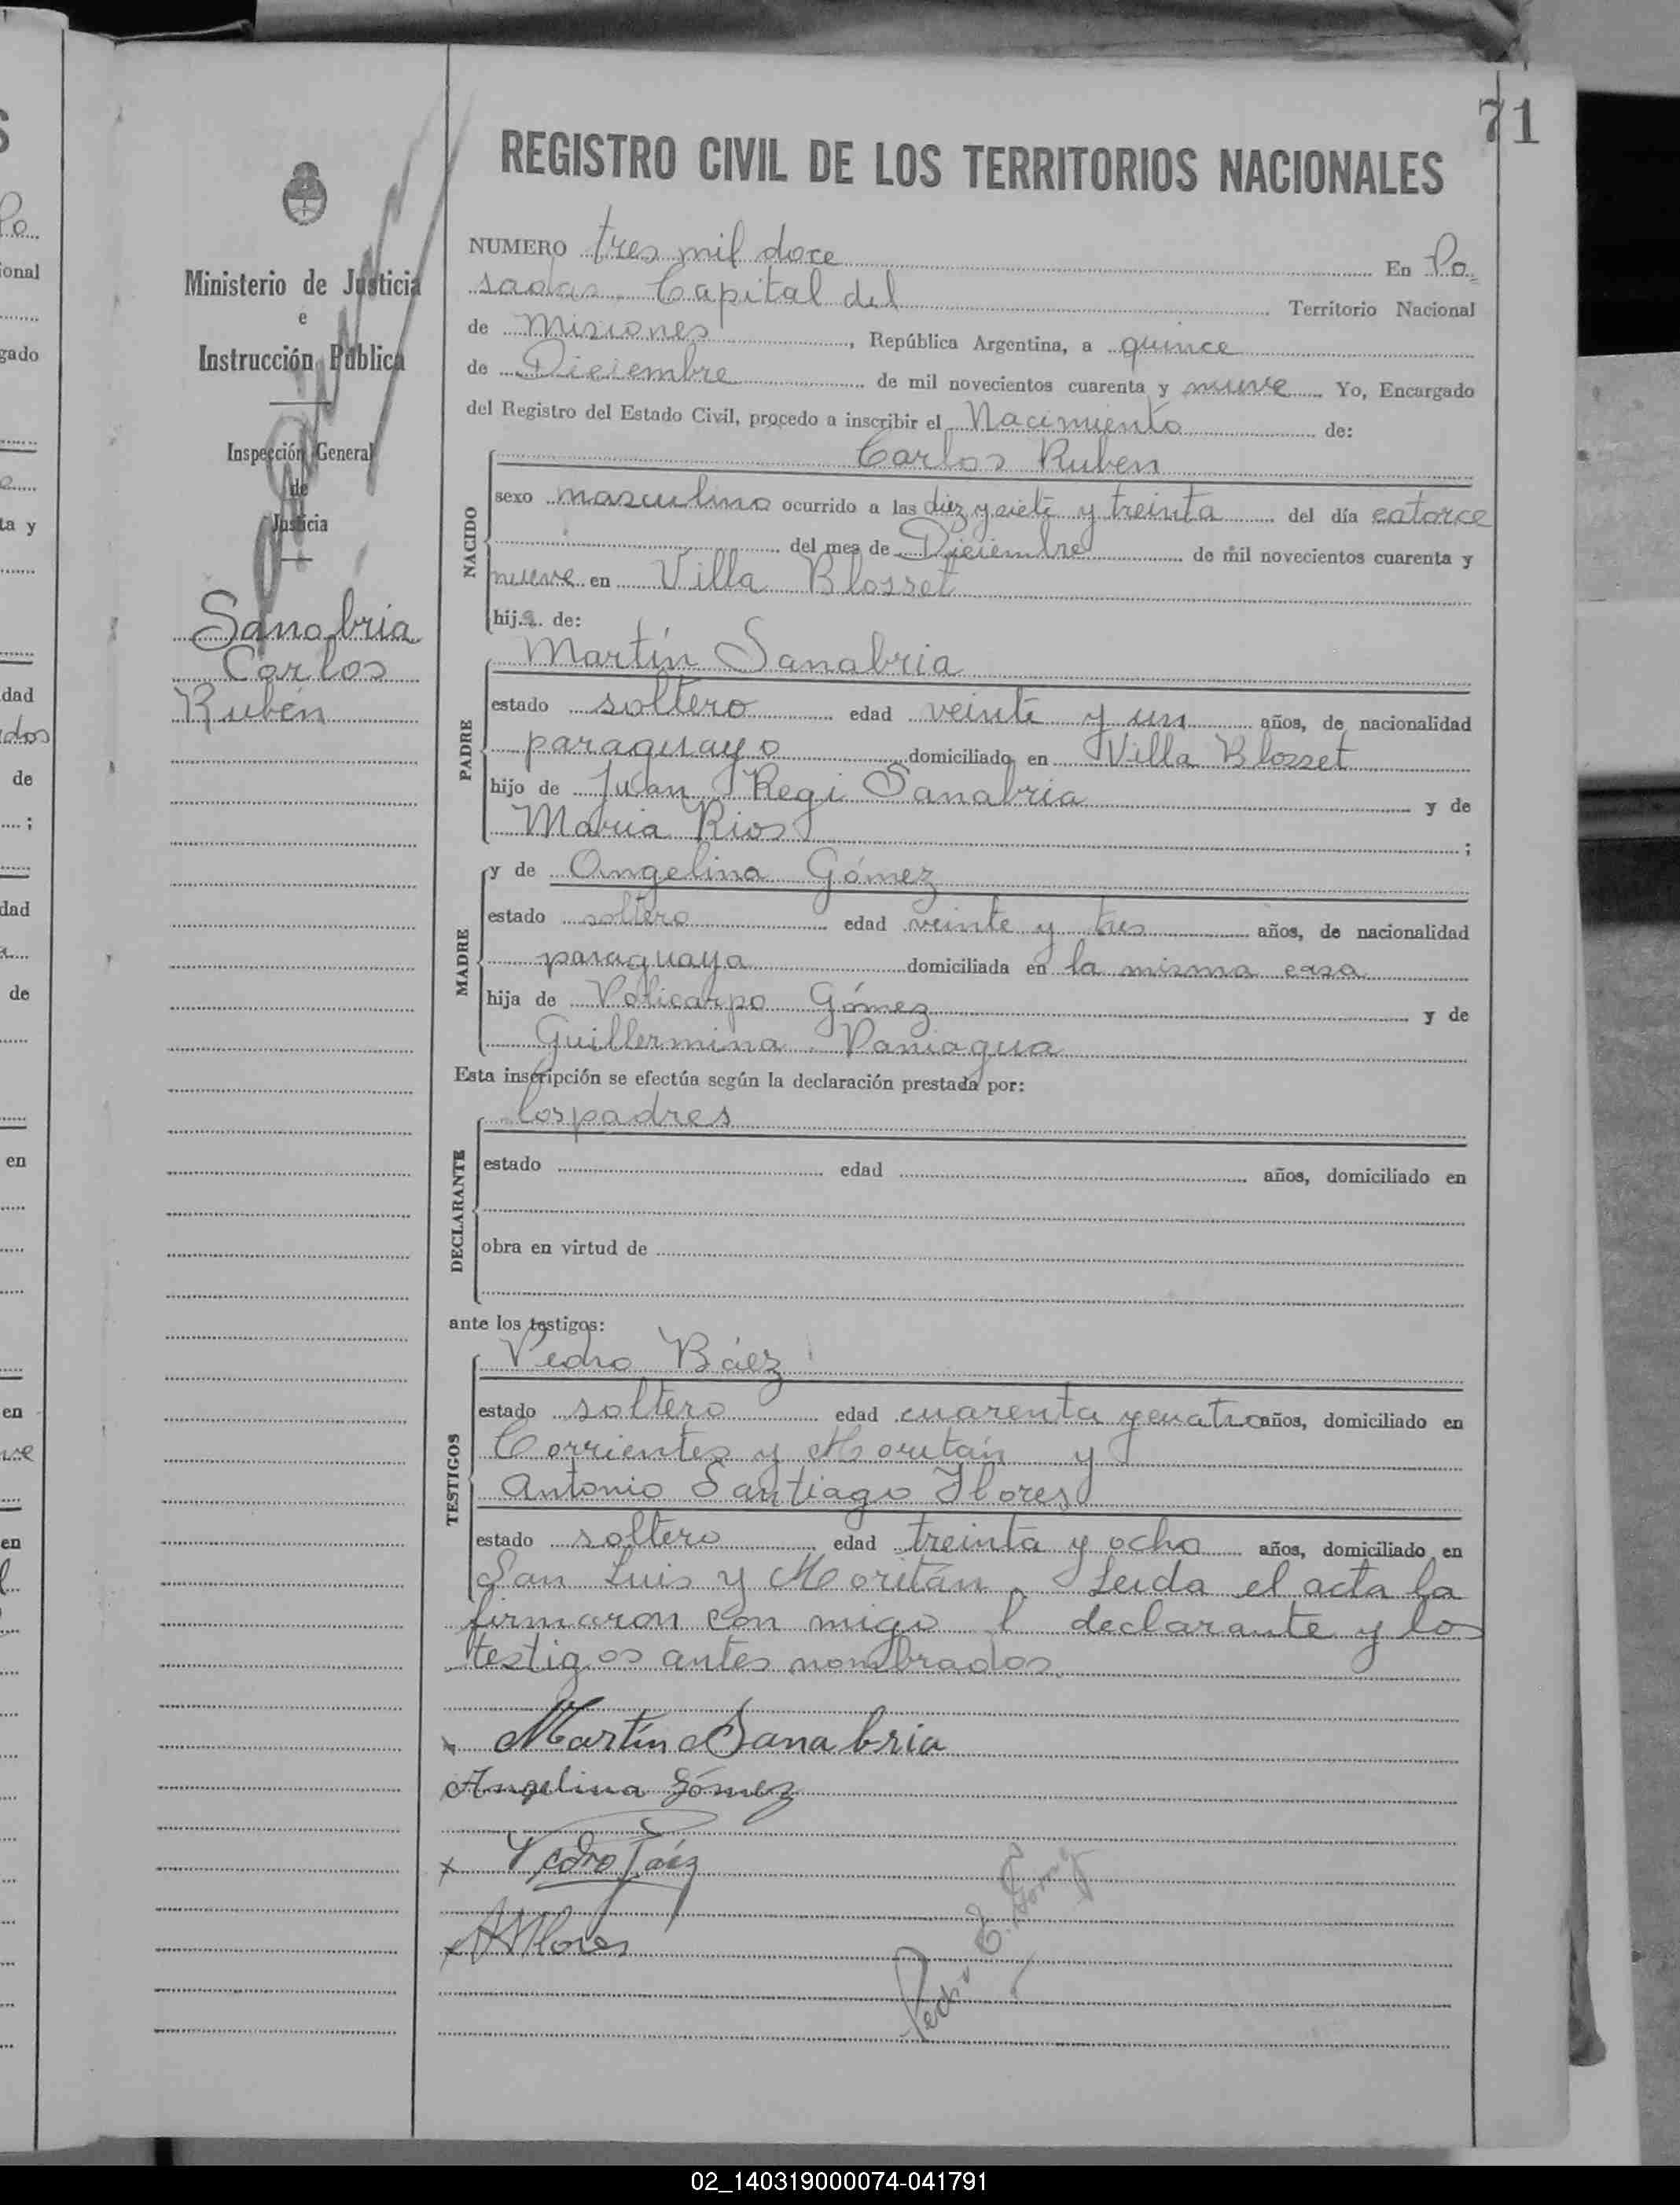 71
REGISTRO CIVIL DE LOS TERRITORIOS NACIONALES
Ministerio de Justicia
e
Instrucción Pública
Inspección General
de
Justicia
Sanabria
Carlos
Rubén
NUMERO tres mil doce En Po=
sadas Capital del Territorio Nacional
de Misiones, República Argentina, a quince
de Diciembre de mil novecientos cuarenta y nueve Yo, Encargado
del Registro del Estado Civil, procedo a inscribir el Nacimiento de:
Carlos Ruben
NACIDO
sexo masculino ocurrido a las diez y siete y treinta del día catorce
del mes de Diciembre de mil novecientos cuarenta y
nueve en Villa Blosset
hijo de:
PADRE
Martín Sanabria
estado soltero edad veinte y un años, de nacionalidad
paraguayo domiciliado en Villa Blosset
hijo de Juan Regi Sanabria y de
Maria Rios ;
MADRE
y de Angelina Gómez
estado soltera edad veinte y tres años, de nacionalidad
paraguaya domiciliada en la misma casa
hija de Policarpo Gómez y de
Guillermina Paniagua
Esta inscripción se efectúa según la declaración prestada por:
DECLARANTE
los padres
estado edad años, domiciliado en
obra en virtud de
ante los testigos:
TESTIGOS
Pedro Báez
estado soltero edad cuarenta y cuatro años, domiciliado en
Corrientes y Moritán y
Antonio Santiago Flores
estado soltero edad treinta y ocho años, domiciliado en
San Luis y Moritán. Leida el acta la
firmaron con migo l declarante y los
testigos antes nombrados.
x Martín Sanabria
Angelina Gómez
x Pedro Báez
x A S Flores
Pedro E. Gomez
02_140319000074-041791